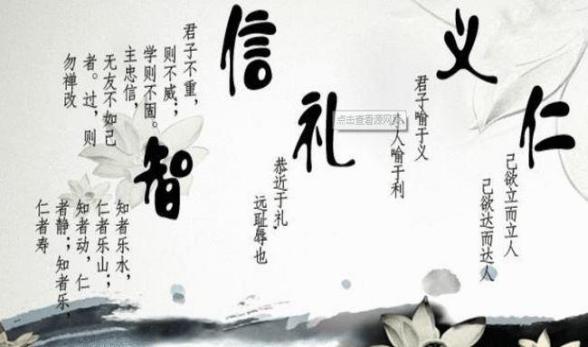 仁
己欲立而立人
己欲达而达人
义
君子喻于义
人喻于利
点击查看源网
礼
恭近于礼,
远耻辱也
信
君子不重,
则不威;
学则不固。
主忠信,
无友不如己
者。过,则
勿禅改
智
知者乐水,
仁者乐山;
知者动,仁
者静;知者乐,
仁者寿